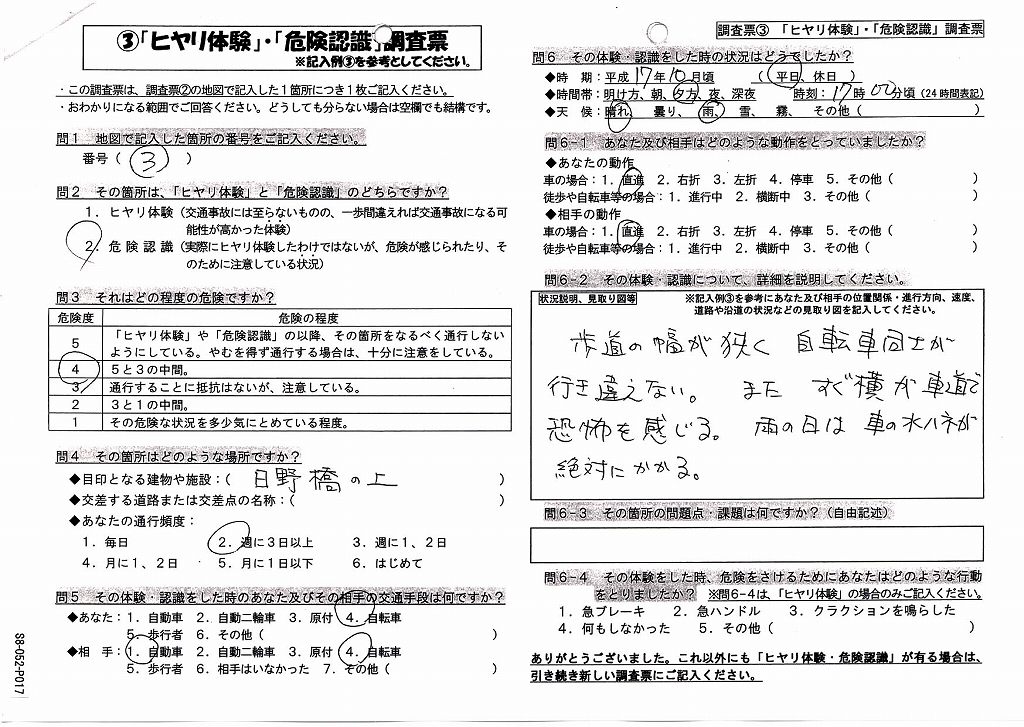 ③「ヒヤリ体験」・「危険認識」調査票
※記入例③を参考としてください。
・この調査票は、調査票②の地図で記入した１箇所につき１枚ご記入ください。
・おわかりになる範囲でご回答ください。どうしても分らない場合は空欄でも結構です。
問１　地図で記入した箇所の番号をご記入ください。
番号（　3　）
問２　その箇所は、「ヒヤリ体験」と「危険認識」のどちらですか？
１．ヒヤリ体験（交通事故には至らないものの、一歩間違えれば交通事故になる可
能性が高かった体験）
２．危険認識（実際にヒヤリ体験したわけではないが、危険が感じられたり、そ
のために注意している状況）
問３　それはどの程度の危険ですか？
危険度　危険の程度
５　「ヒヤリ体験」や「危険認識」の以降、その箇所をなるべく通行しない
ようにしている。やむを得ず通行する場合は、十分に注意をしている。
４　５と３の中間。
３　通行することに抵抗はないが、注意している。
２　３と１の中間。
１　その危険な状況を多少気にとめている程度。
問４　その箇所はどのような場所ですか？
◆目印となる建物や施設：（　日野橋の上　）
◆交差する道路または交差点の名称：（　）
◆あなたの通行頻度：
１．毎日　２．週に３日以上　３．週に１、２日
４．月に１、２日　５．月に１日以下　６．はじめて
問５　その体験・認識をした時のあなた及びその相手の交通手段は何ですか？
◆あなた：１．自動車　２．自動二輪車　３．原付　４．自転車
５．歩行者　６．その他（　）
◆相　手：１．自動車　２．自動二輪車　３．原付　４．自転車
５．歩行者　６．相手はいなかった　７．その他（　）
S8-052-P017
調査票③　「ヒヤリ体験」・「危険認識」調査票
問６　その体験・認識をした時の状況はどうでしたか？
◆時　期：平成　17年　10月頃　（　平日、休日　）
◆時間帯：明け方、朝、夕方、夜、深夜　時刻：17時　00分頃（24時間表記）
◆天　候：晴れ、　曇り、　雨、　雪、　霧、　その他（　）
問６-１　あなた及び相手はどのような動作をとっていましたか？
◆あなたの動作
車の場合：１．直進　２．右折　３．左折　４．停車　５．その他（　）
徒歩や自転車等の場合：１．進行中　２．横断中　３．その他（　）
◆相手の動作
車の場合：１．直進　２．右折　３．左折　４．停車　５．その他（　）
徒歩や自転車等の場合：１．進行中　２．横断中　３．その他（　）
問６-２　その体験・認識について、詳細を説明してください。
状況説明、見取り図等　※記入例③を参考にあなた及び相手の位置関係・進行方向、速度、
道路や沿道の状況などの見取り図を記入してください。
歩道の幅が狭く　自転車同士が
行き違えない。　また　すぐ横が車道で
恐怖を感じる。　雨の日は　車の水ハネが
絶対にかかる。
問６-３　その箇所の問題点・課題は何ですか？（自由記述）
問６-４　その体験をした時、危険をさけるためにあなたはどのような行動
をとりましたか？　※問６-４は、「ヒヤリ体験」の場合のみご記入ください。
１．急ブレーキ　２．急ハンドル　３．クラクションを鳴らした
４．何もしなかった　５．その他（　）
ありがとうございました。これ以外にも「ヒヤリ体験・危険認識」が有る場合は、
引き続き新しい調査票にご記入ください。